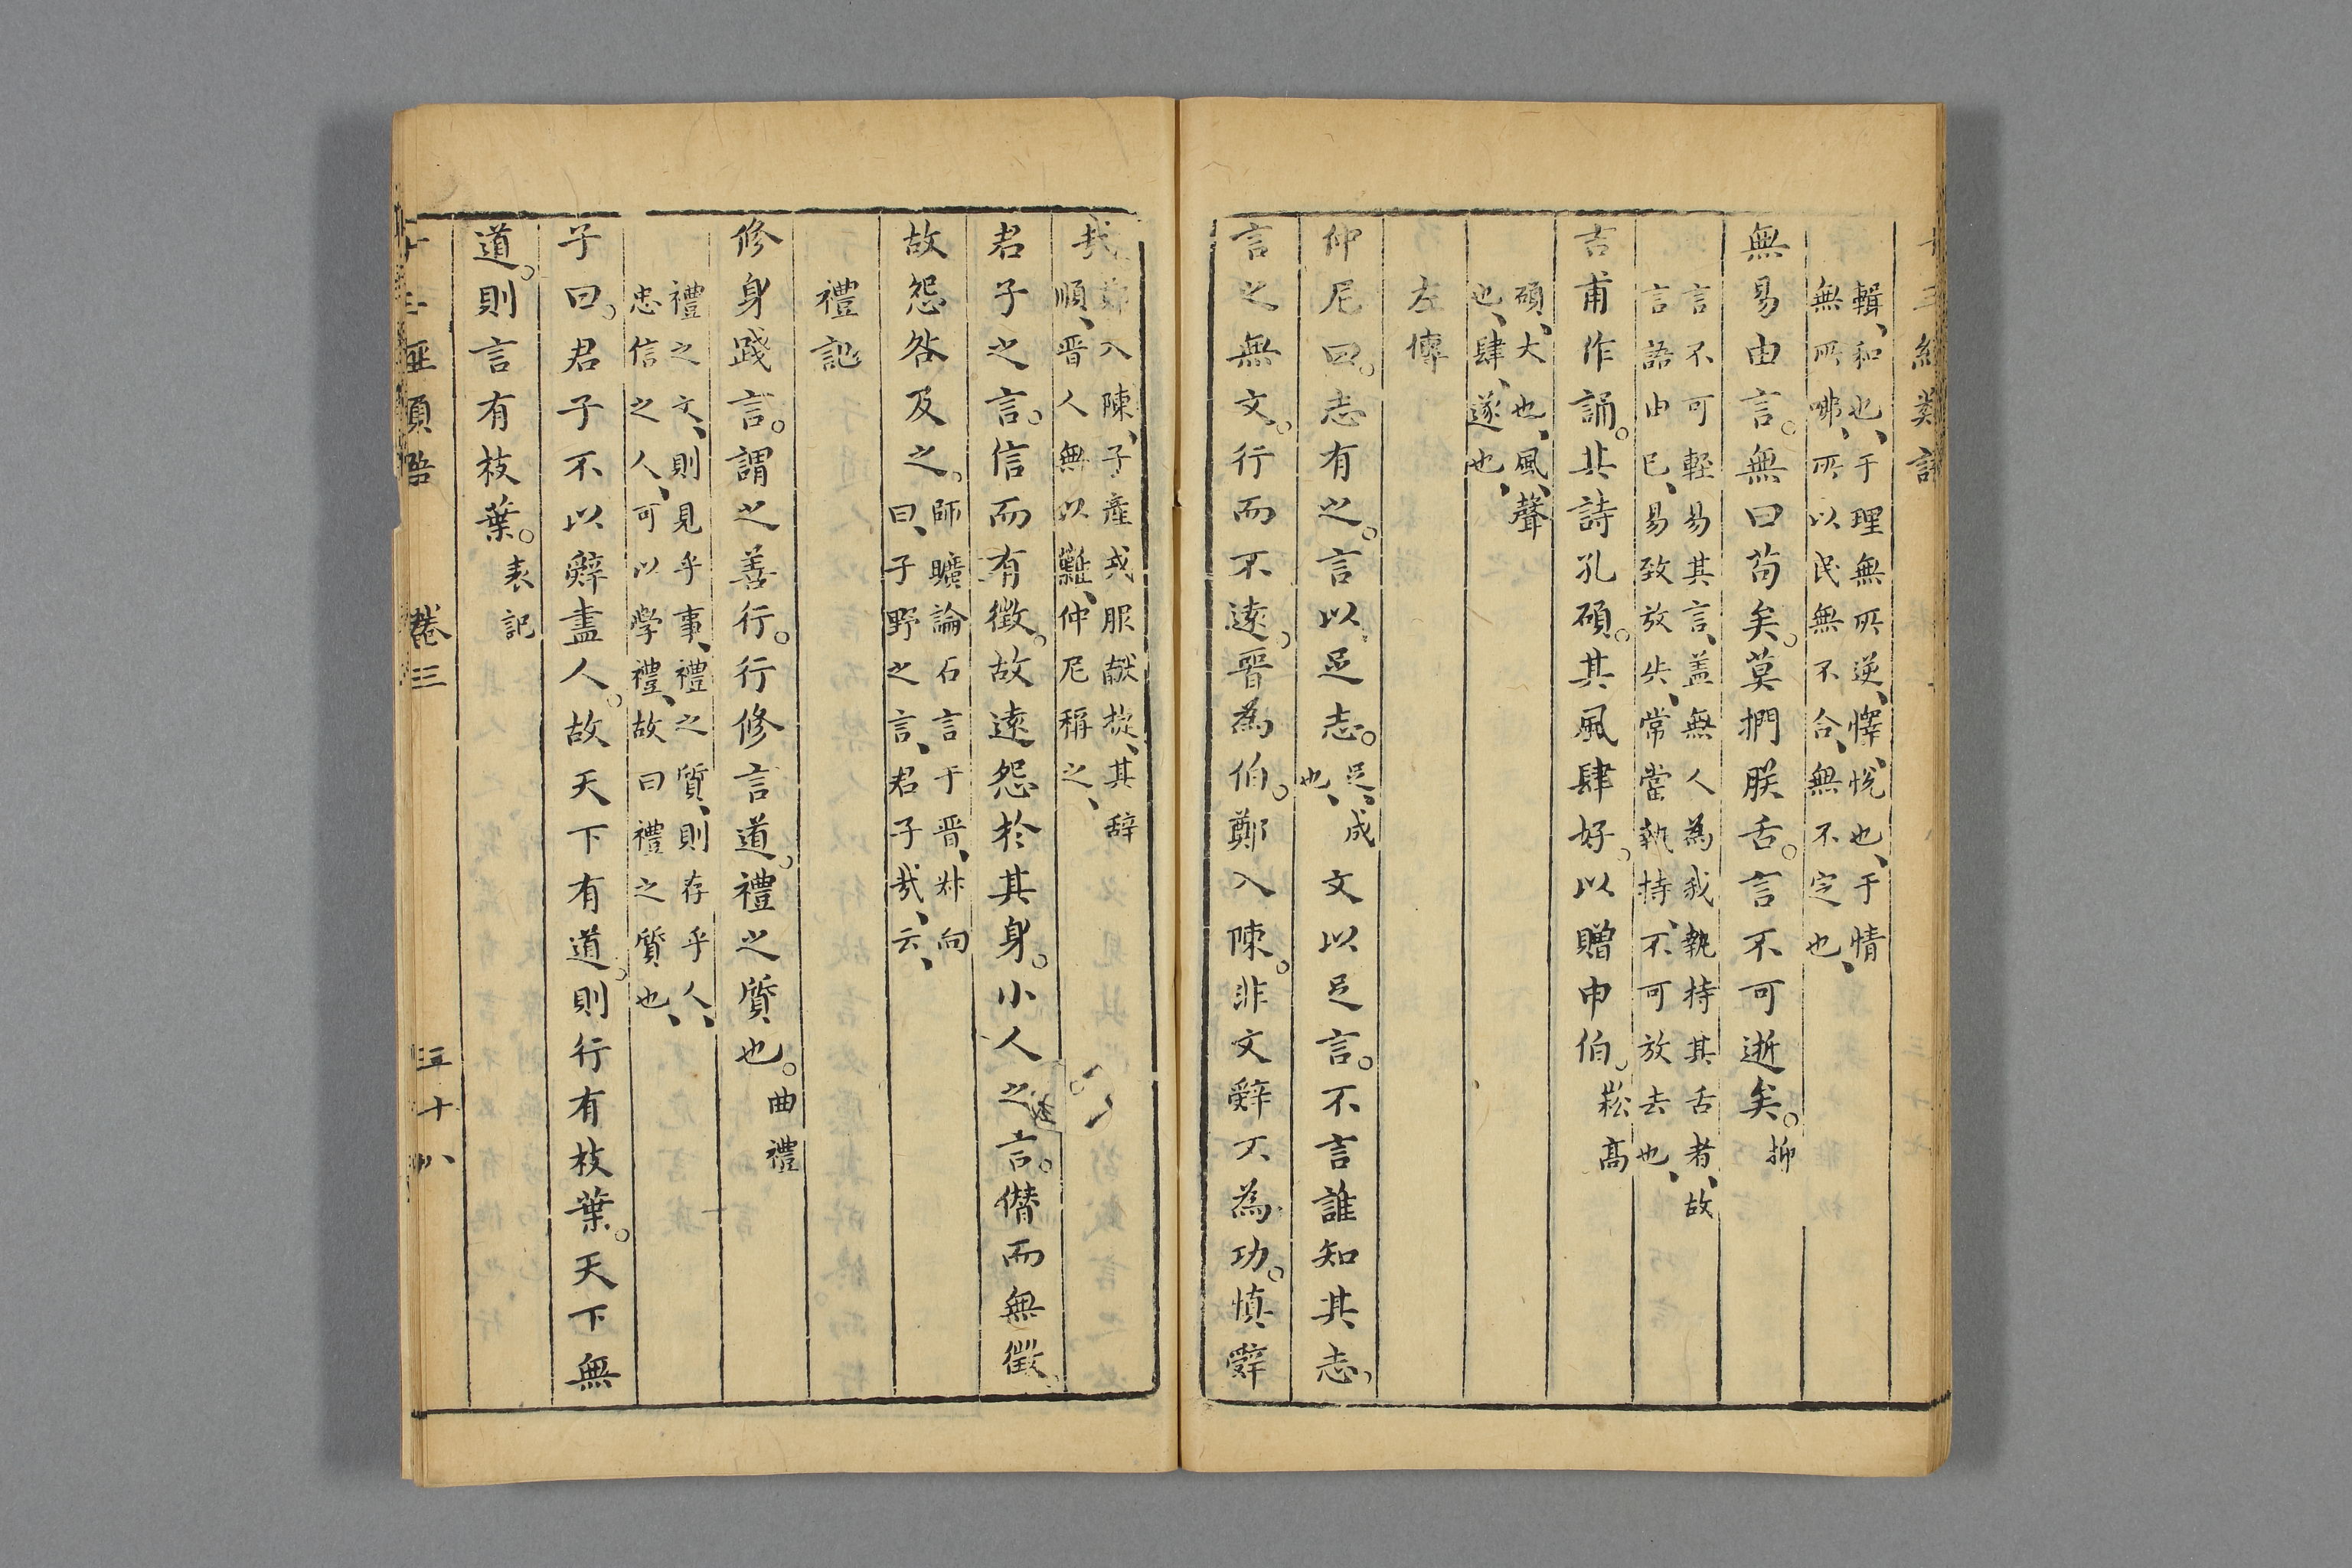 輯、和也、于理無所逆、懌、悅也、于情
無所咈、所以民無不合、無不定也、
無易由言。無曰茍矣。莫捫朕舌。言不可逝矣。抑
言不可輕易其言、盖無人為我執持其舌者、故
言語由已、易致放失、常當執持、不可放去也、
吉甫作誦。其詩孔碩。其風肆好。以贈申伯。崧高
碩、大也、風、聲
也、肆、遂也、
左傳
仲尼曰。志有之。言以足志。足、成也、文以足言。不言誰知其志。
言之無文。行而不遠。晉為伯。鄭入陳。非文辭不為功。慎辭
哉。鄭入陳、子產戎服献捷、其辞
順、晋人無以難、仲尼稱之、
君子之言。信而有徵。故遠怨於其身。小人之言。僭而無徵。
故怨咎及之。師曠論石言于晋、叔向
曰、子野之言、君子哉、云、
禮記
修身踐言。謂之善行。行修言道。禮之質也。曲禮
禮之文、則見乎事、禮之質、則存乎人、
忠信之人、可以學禮、故曰禮之質也、
子曰。君子不以辭盡人。故天下有道。則行有枝葉。天下無
道。則言有枝葉。表記
卷三
五十八